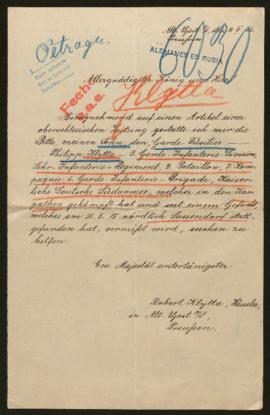 Petragu
Alt. Ujest O/S
Preußen
ALEMANES EN RUSI
6030
Klytta
Fecha
Allergnädigster König und Herr
Bezugnehmend auf einen Artikel einer
oberschlesischen Zeitung gestatte ich mir die
Bitte, meinen Sohn, den Garde Füsilier
Philipp Klytta 3. Garde-Infanterie-Division,
Lehr-Infanterie-Regiment, 2. Bataillon, 7. Kom-
pagnie, 6. Garde Infanterie-Brigade, Kaiser-
liche Deutsche Südarmee, welcher in den Kar-
pathen gekämpft hat und seit einem Gefecht
welches am 31. 5. 15 nördlich statt-
gefunden hat, vermißt wird, suchen zu
helfen.
Ew. Majestät untertänigster
Robert Klytta, Häusler,
in Alt. Ujest O/S.
Preußen.